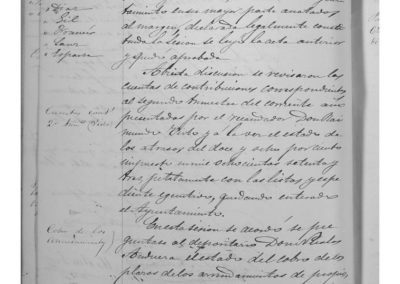 Diaz
" Gil
" Francés
" Sanz
" Esparza
tamiento en su mayor parte anotados
al margen, declarada legalmente consti
tuida la sesion se leyó la acta anterior
y quedó aprobada
Abierta discusion se revisaron las
cuentas de contribuciones correspondientes
al segundo trimestre del corriente año
presentadas por el recaudador Don Rai
mundo
y a la vez el estado
de los atrasos del doce y ocho por ciento
impuesto en mil ochocientos setenta y
tres juntamente con las listas y espe
diente egecutivo, quedando enterado
el Ayuntamiento.
Cuentas cont.
2º trim.
En esta sesion se acordó se pre
guntase al depositario Don Pablo
el estado del cobro de los
plazos de los arrendamientos de propios
Cobro de los
arrendamientos